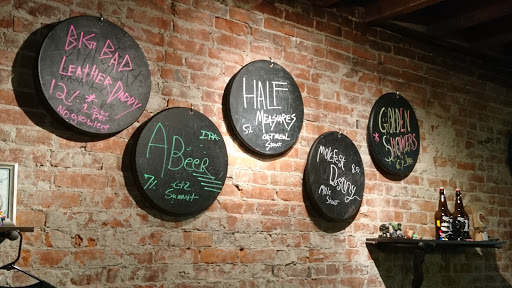 BIG BAD
LEATHER DADDY
12% *
No growlers
A BEER
IPA
7%
Summit
HALF
MEASURES
OATMEAL
Stout
MOLEFEST
DESTINY
Milk
Stout
* GOLDEN
SHOWERS